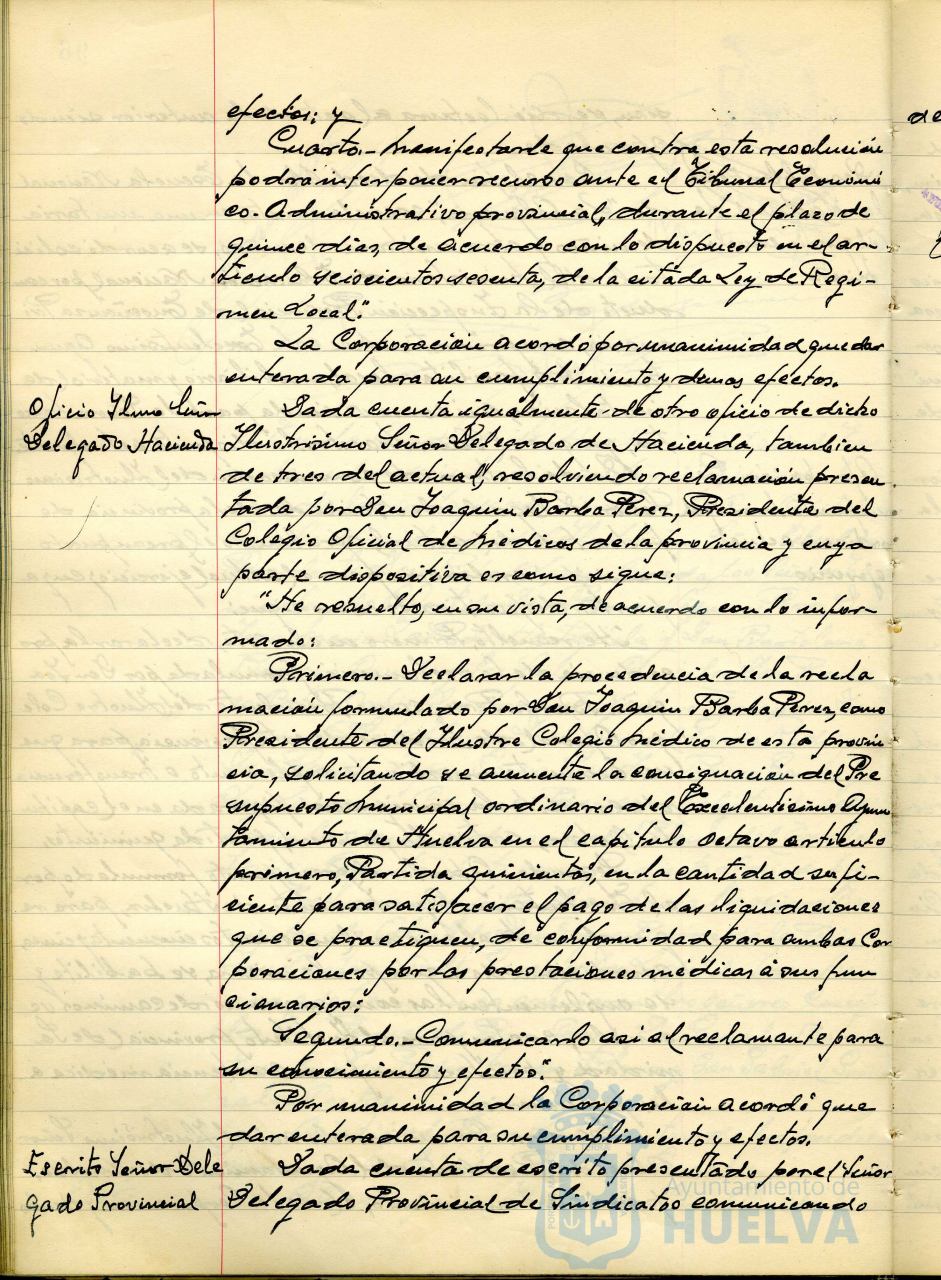 efectos; y
Cuarto.- Manifestarle que contra esta resolución
podrá interponer recurso ante el Tribunal Económi
co-Administrativo provincial, durante el plazo de
quince dias, de acuerdo con lo dispuesto en el ar-
tículo seiscientos sesenta, de la citada Ley de Regi-
men Local."
La Corporación acordó por unanimidad quedar
enterada para su cumplimiento y demas efectos.
Oficio Ilmo Señor
Delegado Hacienda
Dada cuenta igualmente de otro oficio de dicho
Ilustrisimo Señor Delegado de Hacienda, tambien
de tres del actual, resolviendo reclamación presen
tada por Don Joaquin Barba Perez, Presidente del
Colegio Oficial de Médicos de la provincia y cuya
parte dispositiva es como sigue:
"He resuelto, en su vista, de acuerdo con lo infor-
mado:
Primero.- Declarar la procedencia de la recla
mación formulado por Don Joaquin Barba Perez, como
Presidente del Ilustre Colegio Médico de esta provin
cia, solicitando se aumente la consignación del Pre
supuesto Municipal ordinario del Excelentisimo Ayun
tamiento de Huelva en el capítulo octavo artículo
primero, Partida quinientos, en la cantidad sufi-
ciente para satisfacer el pago de las liquidaciones
que se practiquen, de conformidad para ambas Cor
poraciones por las prestaciones médicas á sus fun
cionarios:
Segundo.- Comunicarlo asi al reclamante para
su conocimiento y efectos."
Por unanimidad la Corporación acordó que
dar enterada para su cumplimiento y efectos.
Escrito Señor Dele
gado Provincial
Dada cuenta de escrito presentado por el Señor
Delegado Provincial de Sindicatos comunicando
Ayuntamiento de
HUELVA
de